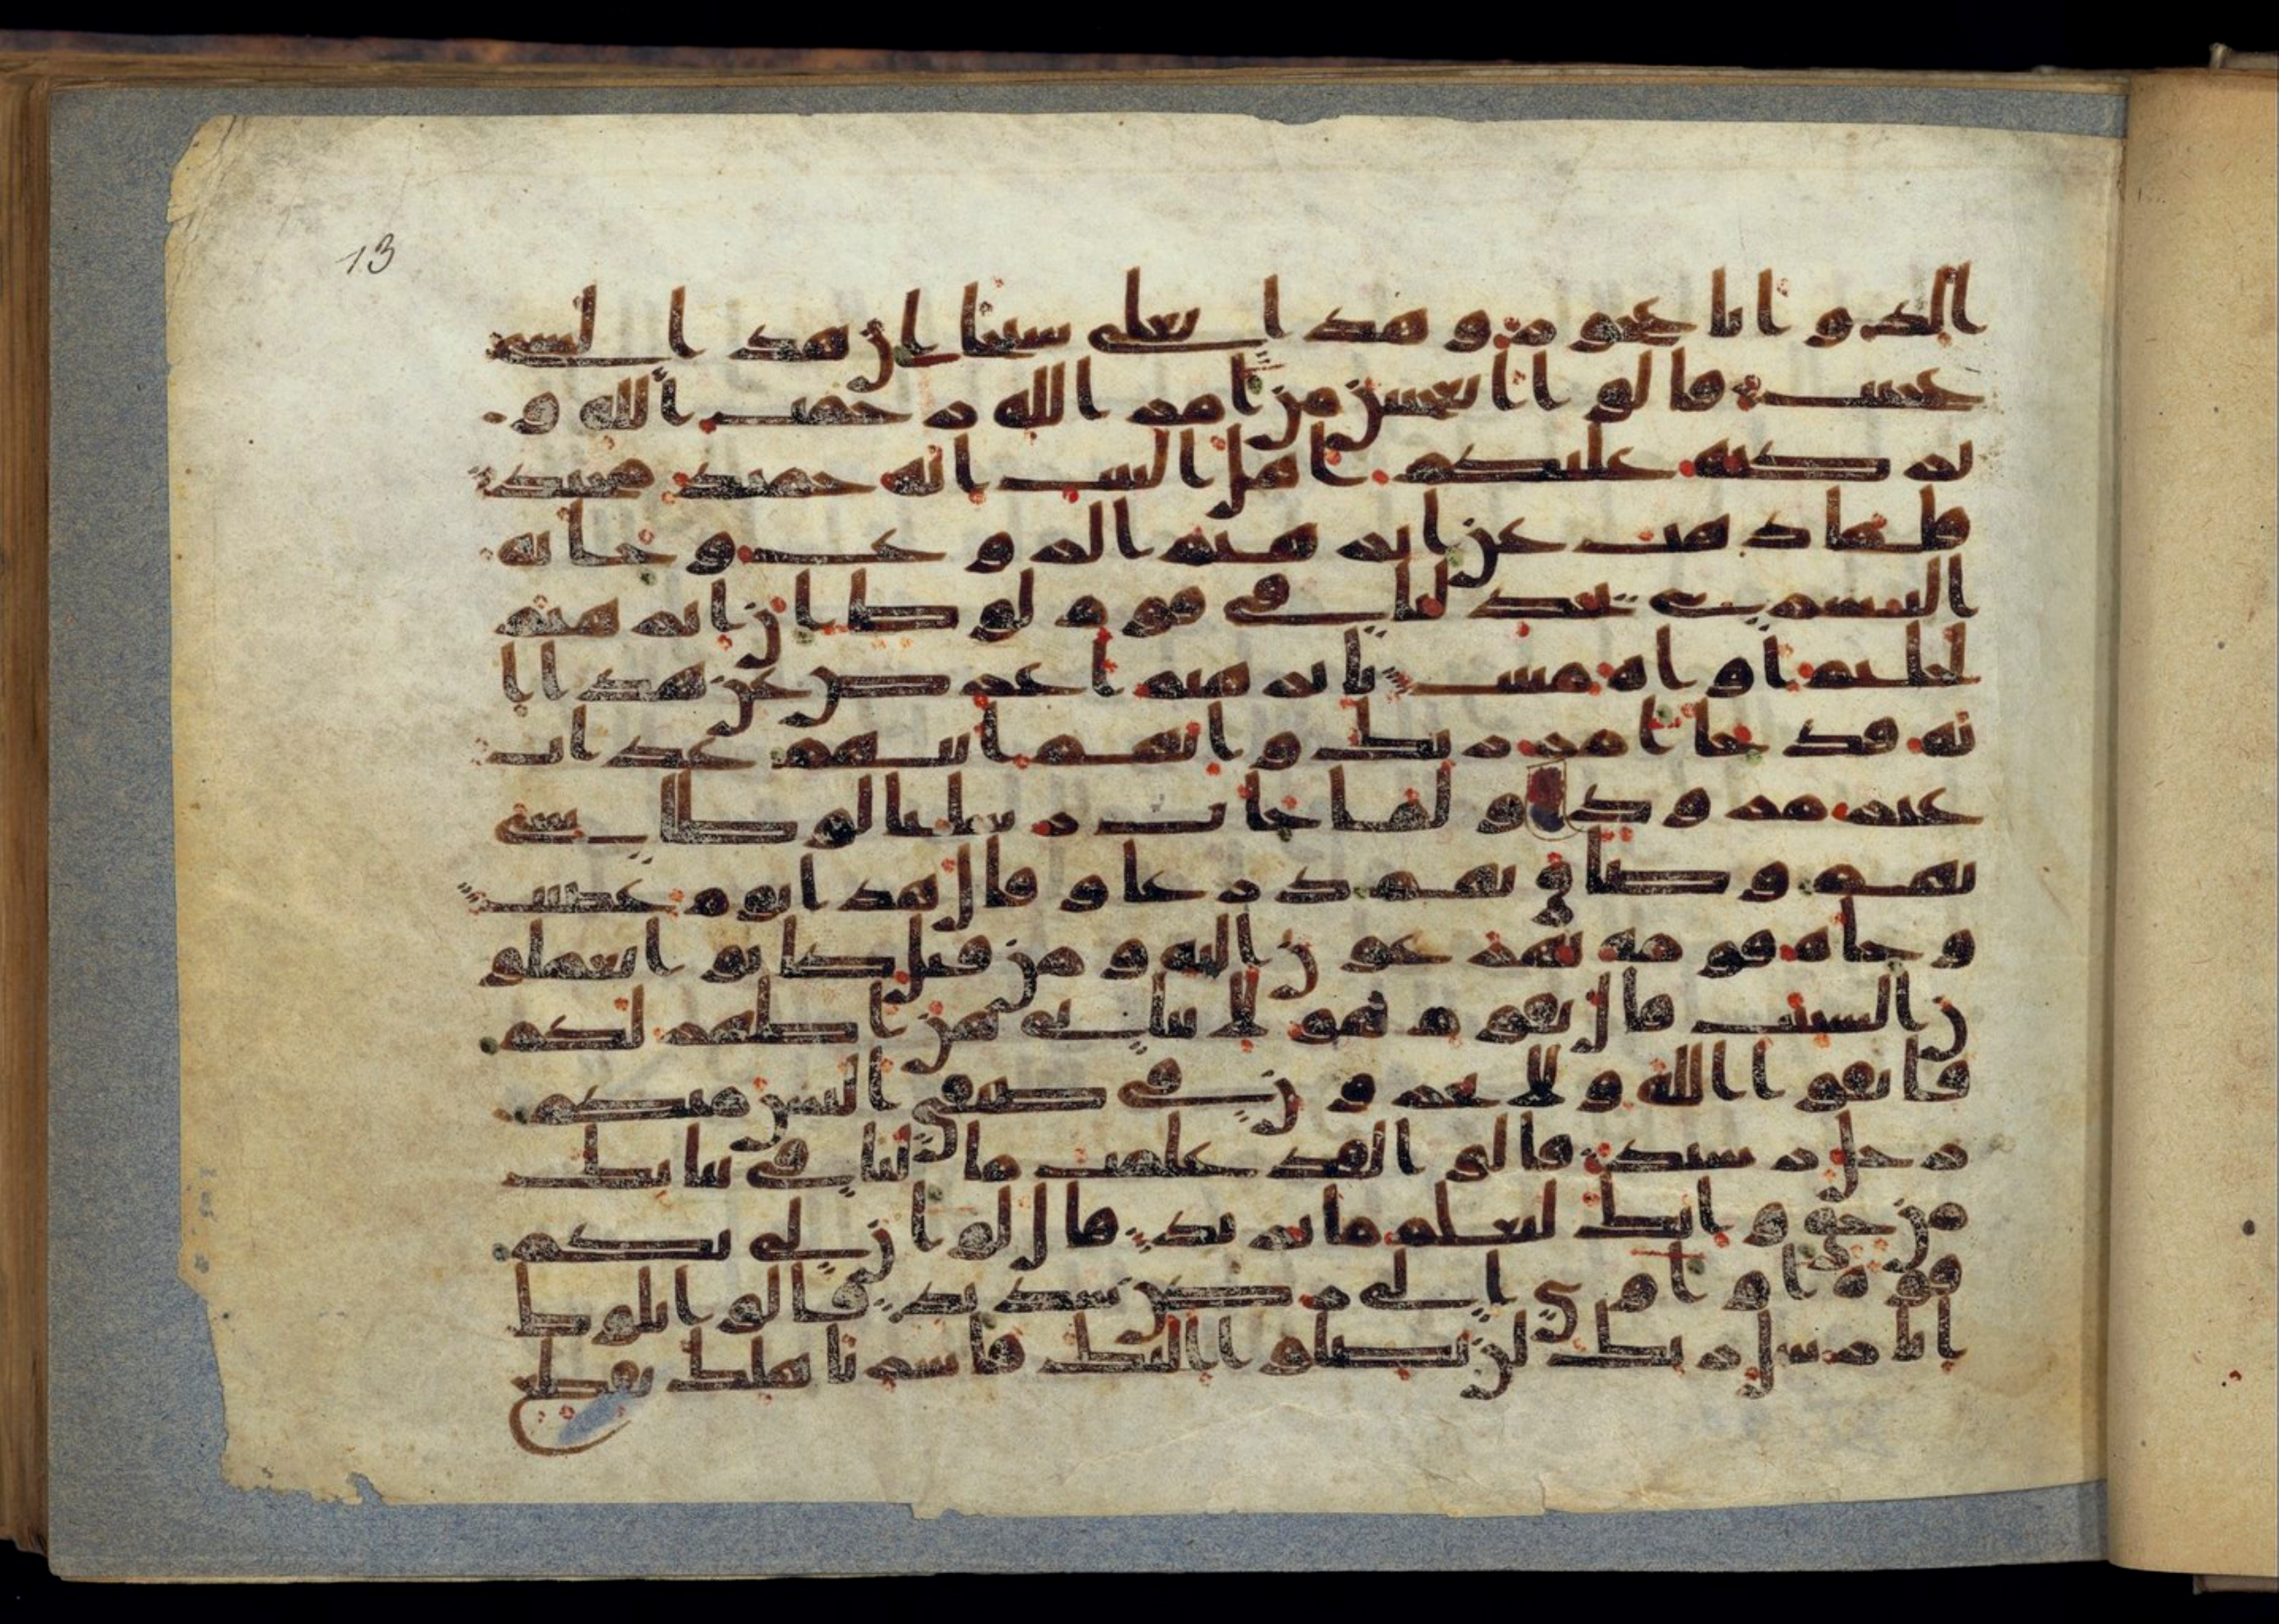 13
الد وانا عجوز وهذا بعلي شيخا ان هذا لشي
عجيب قالوا اتعجبين من امر الله رحمت الله و
بركته عليكم اهل البيت انه حميد مجيد
فلما ذهب عن ابرهيم الروع وجاته
البشرى يجدلنا في قوم لوط ان ابرهيم
لحليم اوه منيب يابرهيم اعرض عن هذا ا
نه قد جا امر ربك وانهم اتيهم عذاب
غير مردود ولما جات رسلنا لوطا سي
بهم وضاق بهم ذرعا وقال هذا يوم عصيب
وجاه قومه يهرعون اليه ومن قبل كانوا يعملو
ن السيت قال يقوم هولا بناتي هن اطهر لكم
فاتقوا الله ولا تخزون في ضيفي اليس منكم
رجل رشيد قالوا لقد علمت ما لنا في بناتك
من حق وانك لتعلم ما نريد قال لو ان لي بكم
قوة او اوي الى ركن شديد قالوا يلوط
انا رسل ربك لن يصلوا اليك فاسر باهلك بقطع